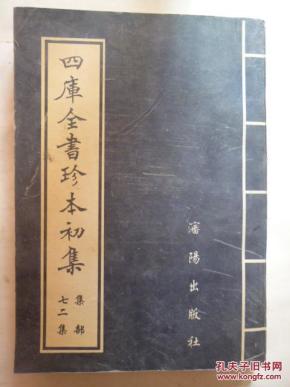 四庫全書珍本初集
集部
七二集
瀋陽出版社
孔夫子旧书网